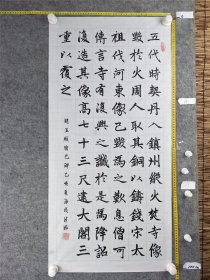 五代時契丹入鎮州縱火焚寺像
毀於火周人取其銅以鑄錢宋太
祖伐河東像已毀為之歎息僧可
傳言寺有復興之讖於是為降詔
復造其像高七十三尺建大閣三
重以覆之
趙孟頫膽巴碑